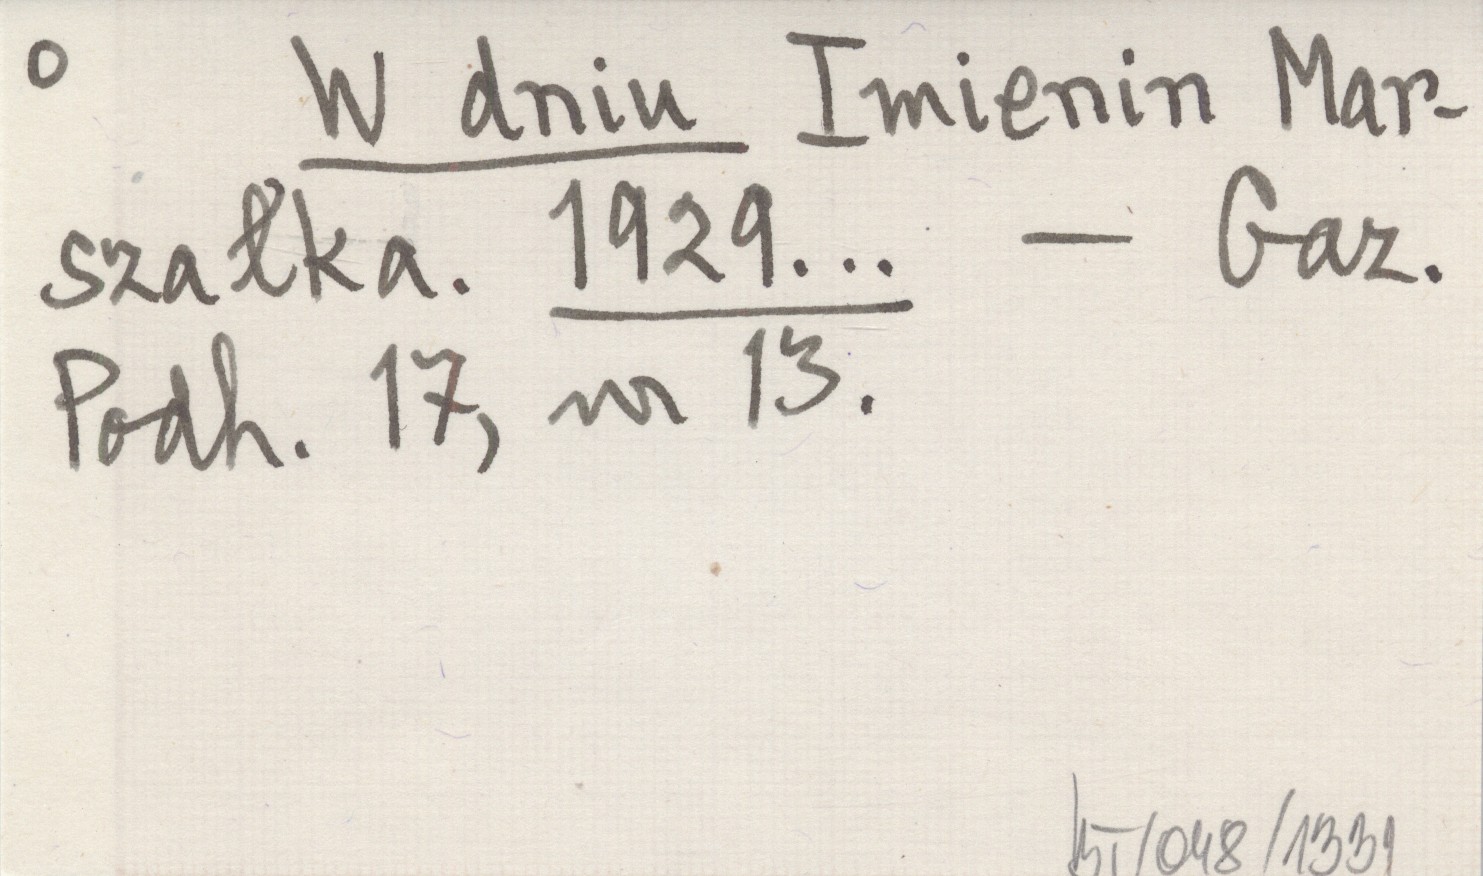 o W dniu Imienin Mar-
szałka. 1929... — Gaz.
Podh. 17, nr 13.
/048/1331